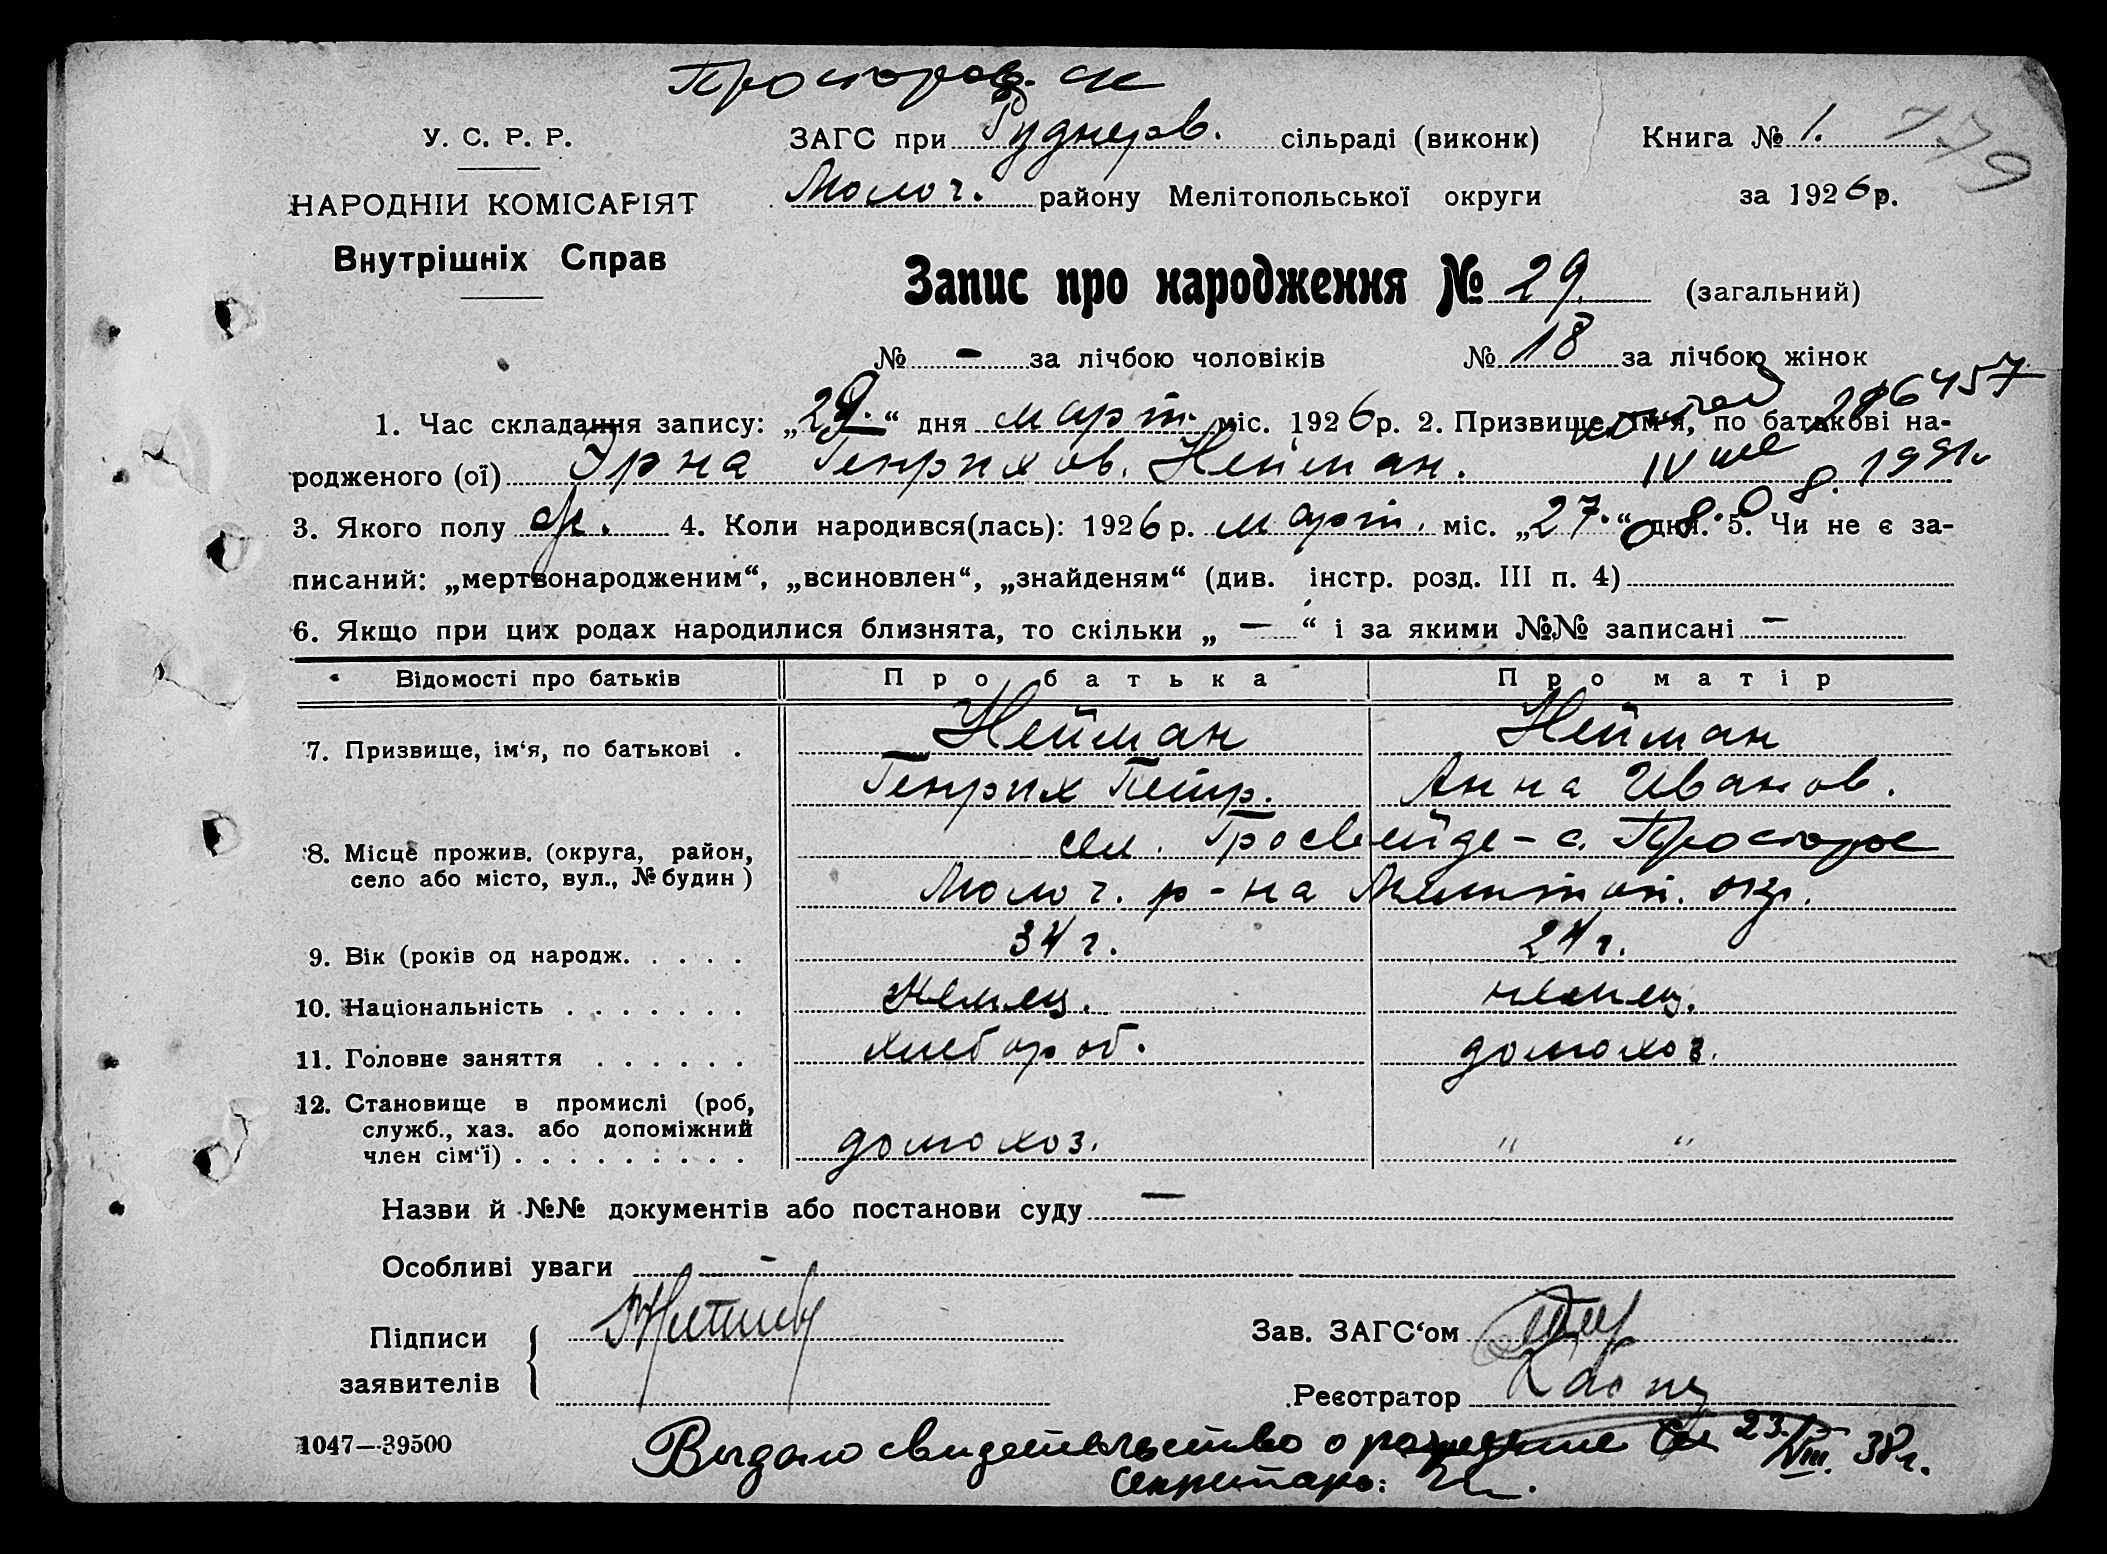 Просторов. с/с
У. С. Р. Р.
ЗАГС при Руднеров. сільраді (виконк)
Книга № 1. 179
НАРОДНІЙ КОМІСАРІЯТ
Молоч. району Мелітопольської округи
за 1926 р.
Внутрішніх Справ
Запис про народження № 29 (загальний)
№ - за лічбою чоловіків № 18 за лічбою жінок
1. Час складання запису: „29.“ дня март. міс. 1926 р. 2. Призвище, ім'я, по батькові на-
родженого (ої) Эрна Генрихов. Нейман.
3. Якого полу ж. 4. Коли народився(лась): 1926 р. март. міс. „27.“ дня. 5. Чи не є за-
08.08.1991г
писаний: „мертвонародженим“, „всиновлен“, „знайденям“ (див. інстр. розд. III п. 4)
6. Якщо при цих родах народилися близнята, то скільки „ — “ і за якими №№ записані —
Відомості про батьків Про батька Про матір
7. Призвище, ім'я, по батькові . Нейман Нейман
Генрих Петр. Анна Иванов.
8. Місце прожив. (округа, район, село або місто, вул., № будин ) с. Просторое
Молоч. р-на Мелитоп. окр.
9. Вік (років од народж. . . . . 34 г. 24 г.
10. Національність . . . . . . . Немец. немец.
11. Головне заняття . . . . . . хлебороб. домохоз.
12. Становище в промислі (роб,
служб., хаз. або допоміжний
член сім'ї) . . . . . . . . . домохоз. " "
Назви й №№ документів або постанови суду —
Особливі уваги -
Підписи
заявителів
Зав. ЗАГС'ом
Реєстратор
1047—39500
Выдано свидетельство о рождение 23/VIII 38 г.
Секретарь: